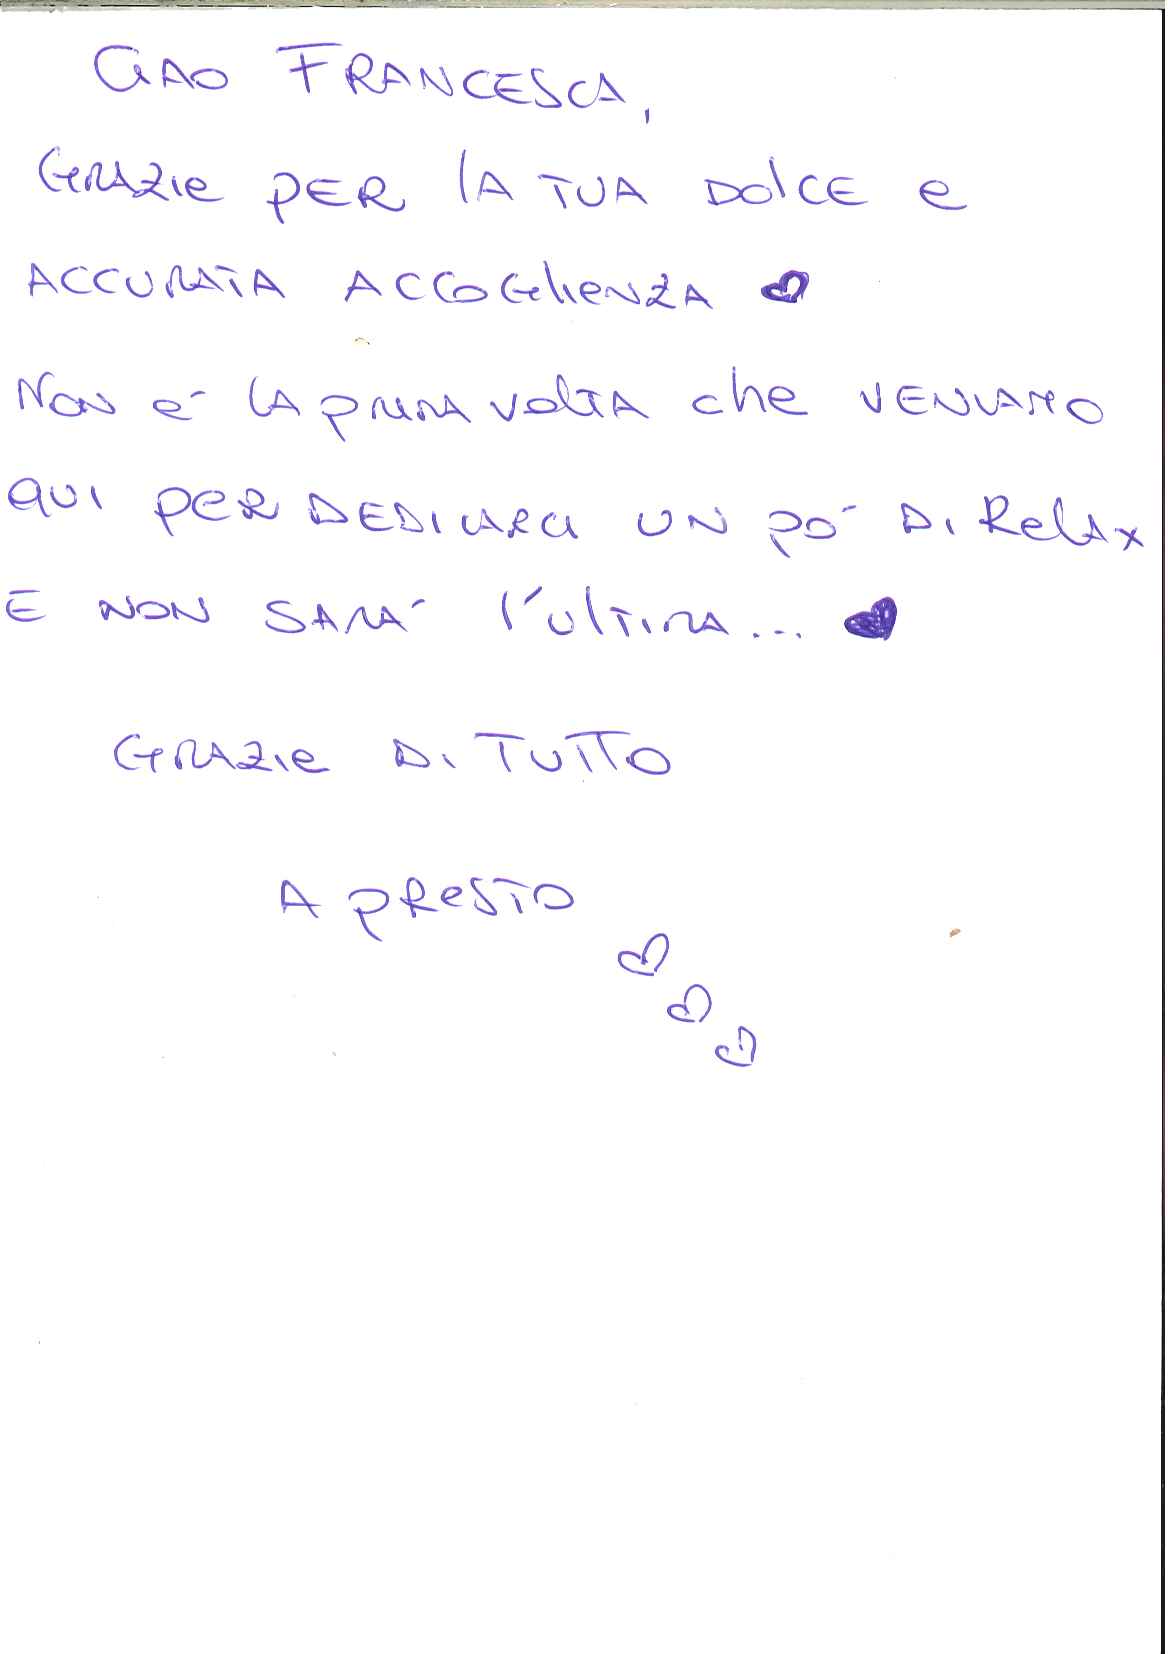 CIAO FRANCESCA,
GRAZIE PER LA TUA DOLCE E
ACCURATA ACCOGLIENZA ♥
NON E' LA PRIMA VOLTA CHE VENIAMO
QUI PER DEDICARCI UN PO' DI RELAX
E NON SARA' L'ULTIMA... ♥
GRAZIE DI TUTTO
A PRESTO
♡
♡
♡